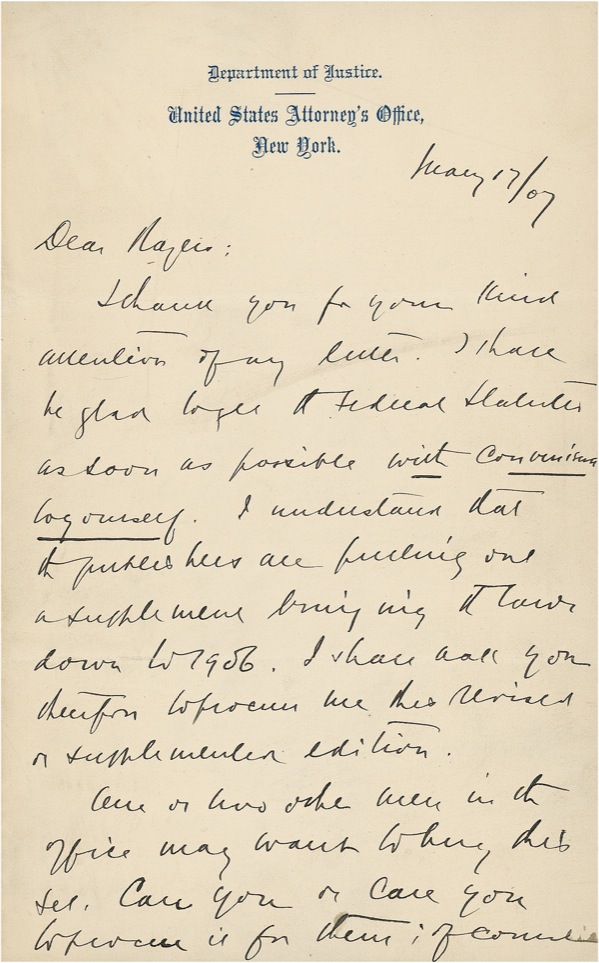 Department of Justice.
United States Attorney's Office,
New York.
May 17/07
Dear Rogers:
I thank you for your kind
attention of my letter. I shall
be glad to get th Federal Statutes
as soon as possible with convenience
to yourself. I understand that
th publishers are putting out
a supplement bringing th laws
down to 1906. I shall ask you
therefore to procure me this revised
or supplemented edition.
One or two other men in th
office may want to buy this
set. Can you or care you
to procure it for them; of course